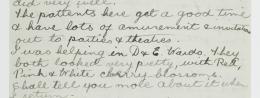 did very well.
The patients here get a good time
& have lots of amusement & invitations
out to parties & theatres.
I was helping in D & E Wards. They
both looked very pretty, with Red,
Pink & White cherry blossoms.
I shall tell you more about it when
I return.